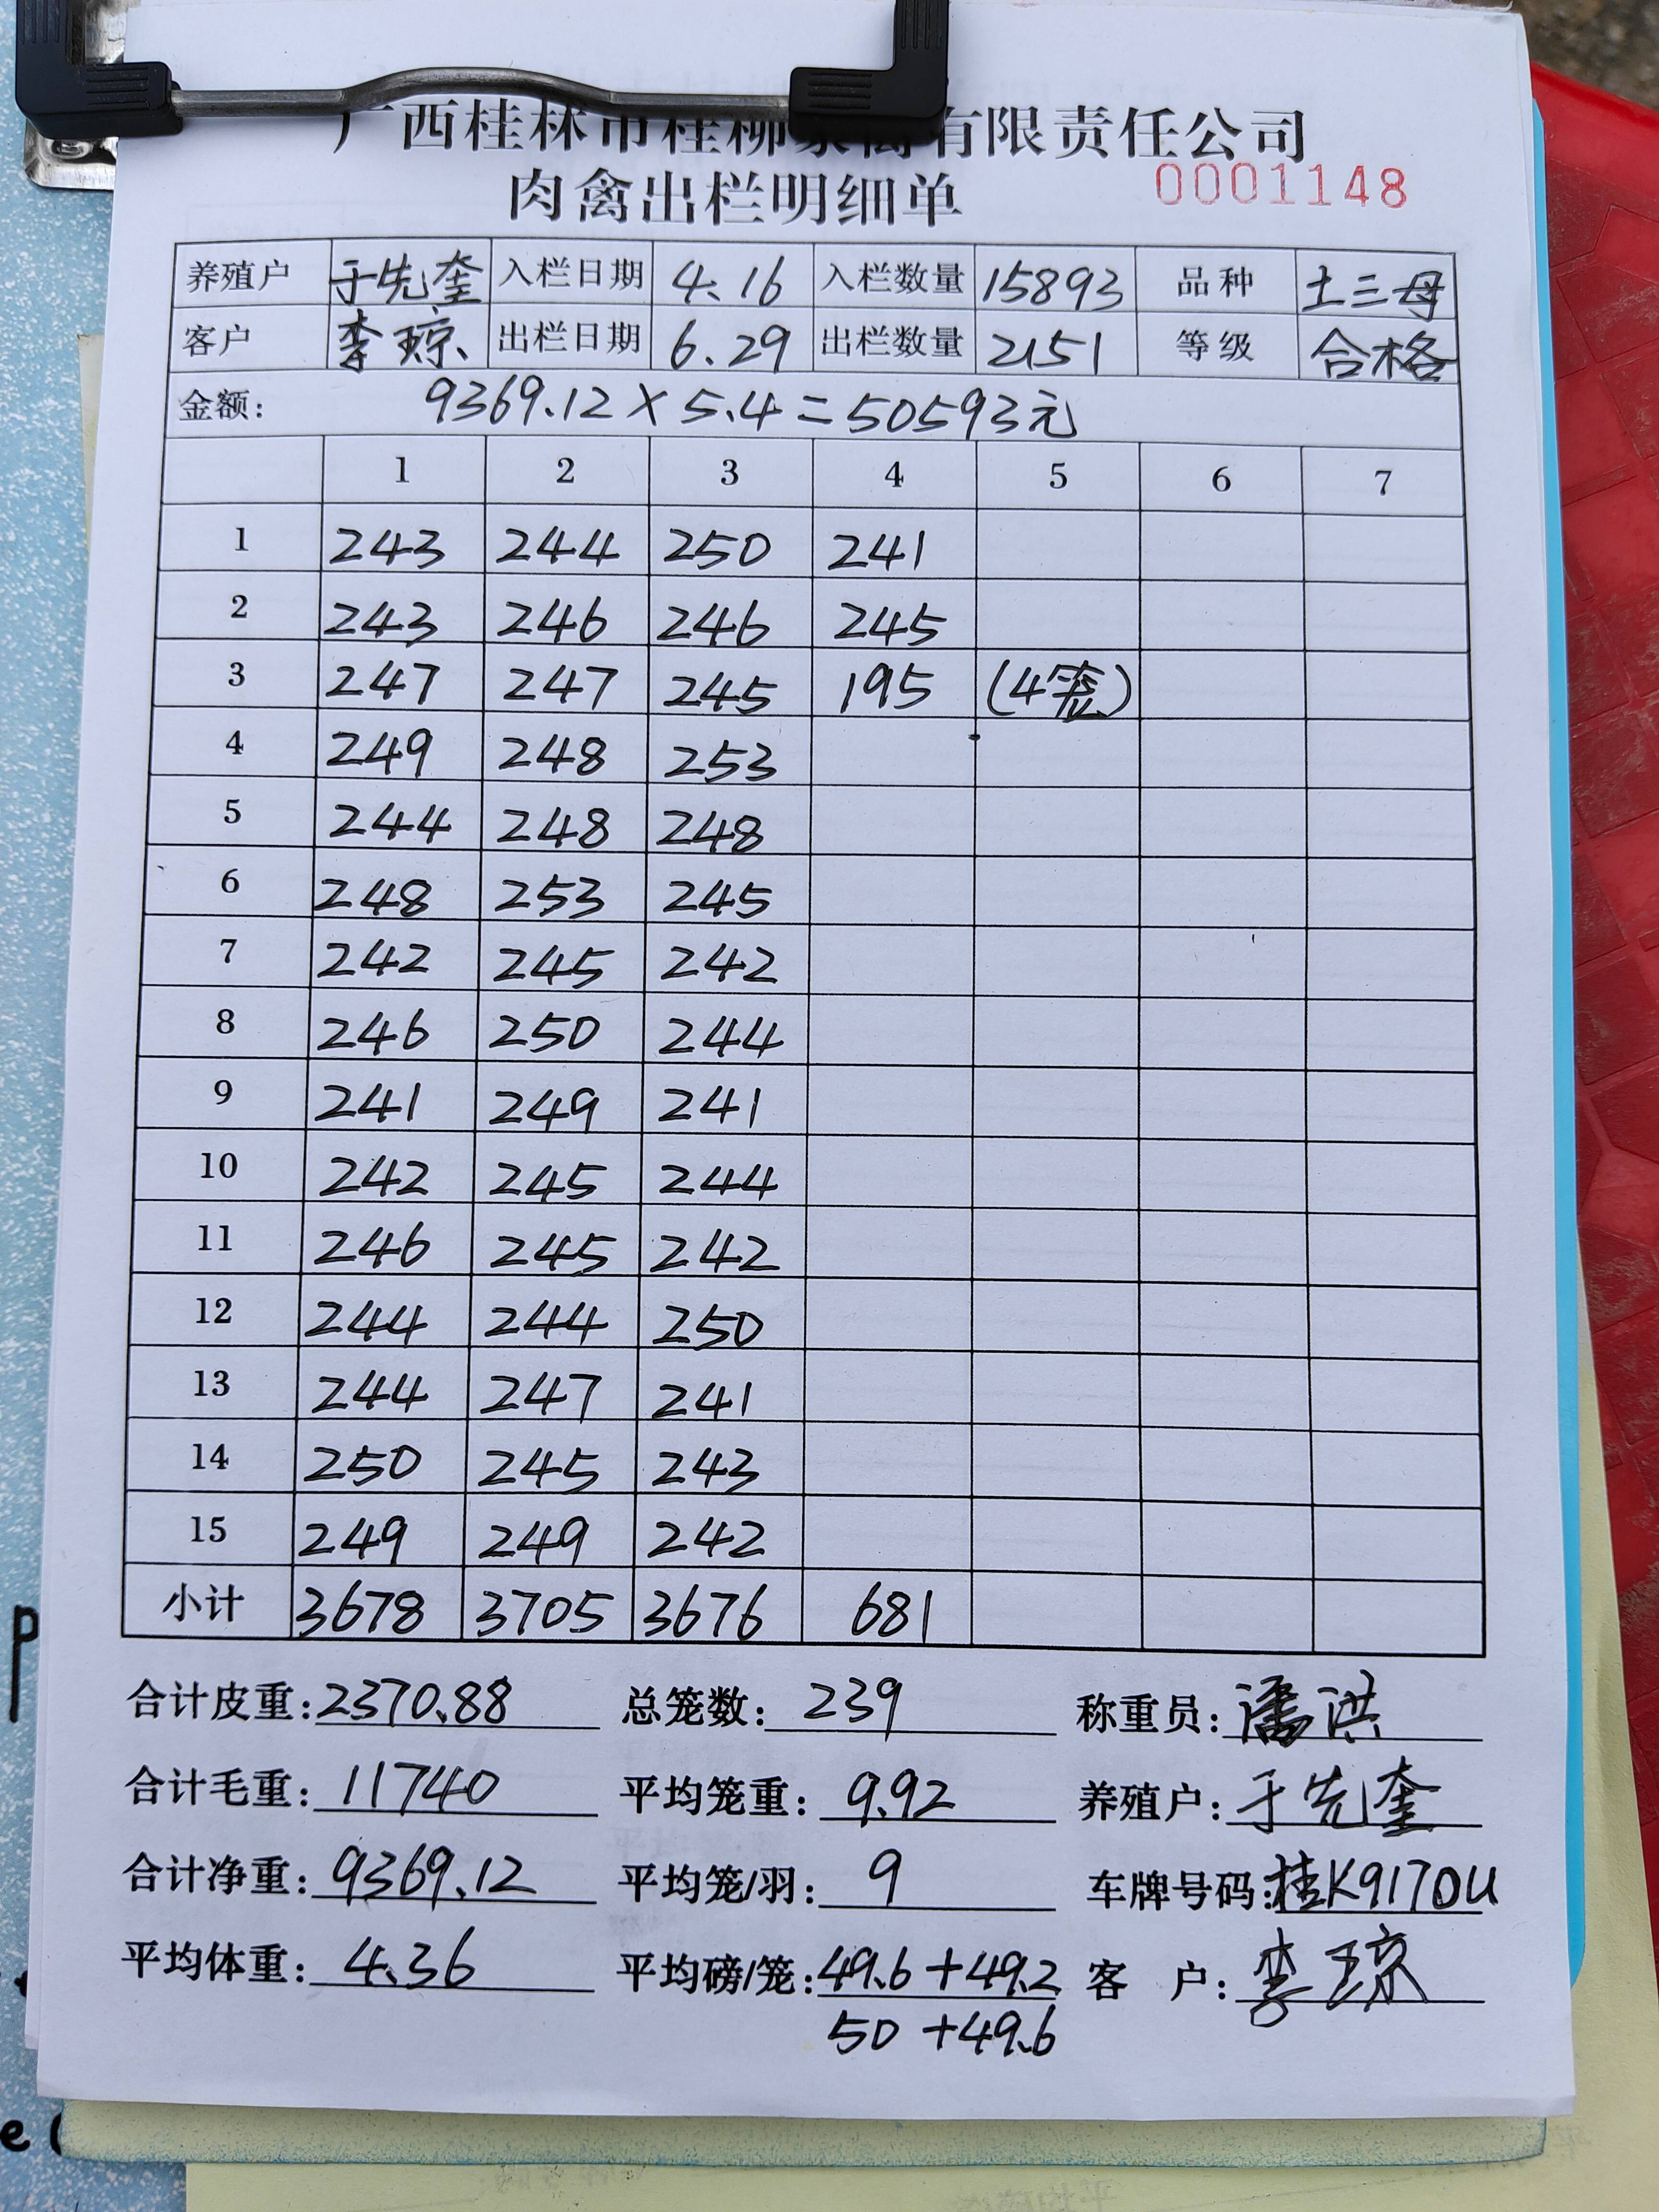 广西桂林市桂柳家禽有限责任公司
肉禽出栏明细单 0001148
养殖户 于先奎 入栏日期 4.16 入栏数量 15893 品种 土三母
客户 李琼 出栏日期 6.29 出栏数量 2151 等级 合格
金额: 9369.12×5.4=50593元
1 2 3 4 5 6 7
1 243 244 250 241
2 243 246 246 245
3 247 247 245 195 (4笼)
4 249 248 253
5 244 248 248
6 248 253 245
7 242 245 242
8 246 250 244
9 241 249 241
10 242 245 244
11 246 245 242
12 244 244 250
13 244 247 241
14 250 245 243
15 249 249 242
小计 3678 3705 3676 681
合计皮重: 2370.88 总笼数: 239 称重员: 潘洪
合计毛重: 11740 平均笼重: 9.92 养殖户: 于先奎
合计净重: 9369.12 平均笼/羽: 9 车牌号码: 桂K9170U
平均体重: 4.36 平均磅/笼: 49.6+49.2 客 户: 李琼
50+49.6